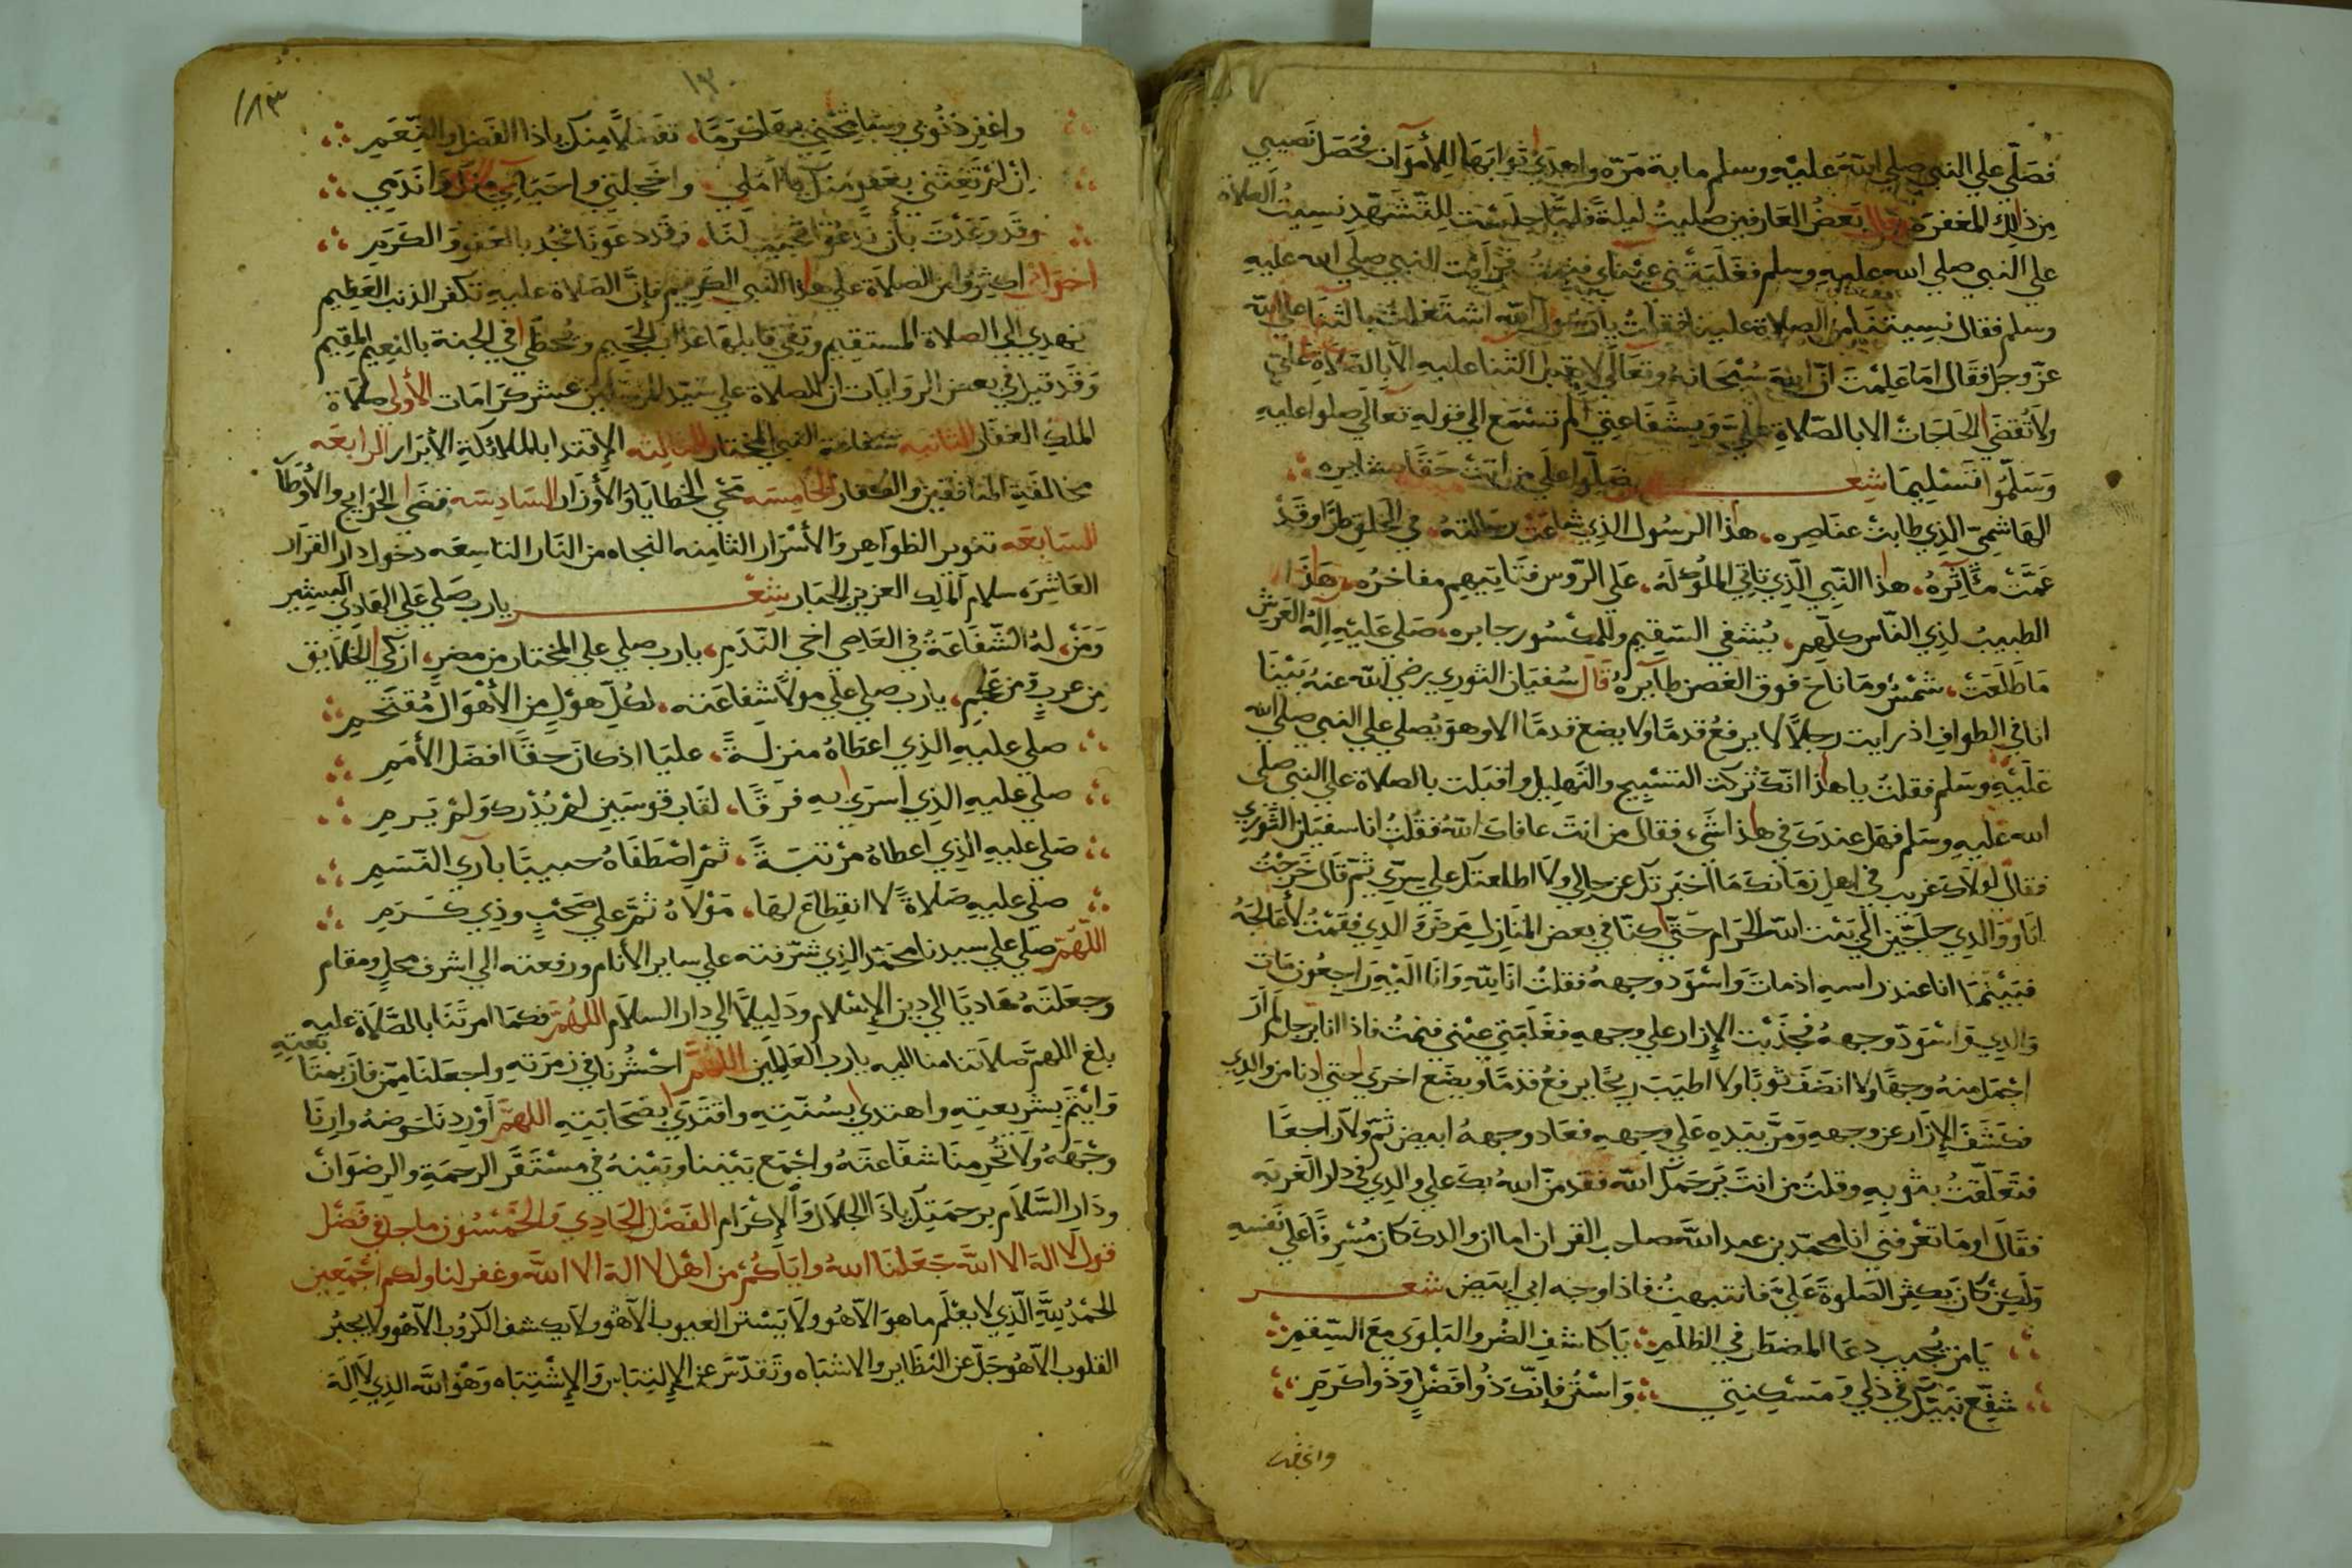 فصَلّي علي النبي صلي اللّه عليْهِ وسلم ماية مَرّه واهدَي ثوابَهَا لِلأموَات فحَصَل نَصيبي
مِن ذالِك المغفرَة وقال بَعضُ العَارفين صليتُ ليلةً فلمَّا جلسْت لِلتّشَهّد نِسيتُ الصَلاة
علي النبي صلي الله عليهِ وسلم فغَلَبَتْني عيْنَاي فنِمتُ فرَأيْت النبي صلي الله عليهِ
وسلم فقال نسِيتَنَا من الصلاة علينا فقُلتُ يا رَسُول اللّه اشتَغلتُ بالثنَا علي اللّه
عزّ وجل فقَال امَا عَلِمْتَ انّ اللّه سُبْحَانَهُ وتعَالي لا يقبَل الثنا عليهِ الا بالصَلاةِ عَليّ
ولا تُقضَي الحَاجَات الا بالصّلاةِ عليّ وَبِشفَاعتِي الم تسْمَع الي قولِه تعَالي صلوا عليهِ
وَسَلّمُوا تسْلِيمًا شِعر صَلّوا علَي من أتَتْ حَقًا بشايره
الهَاشِميّ الذِي طابتْ عنَاصِره، هذا الرسُول الذِي شاعَتْ رسَالتهُ، في الخلقِ طرًّا وقَدْ
عَمَّتْ مآثِرهُ، هذا النّبي الّذِي تاتي المُلُوك لَهُ، عَلَي الرّوس فتَاتِيهِم مفاخرُه، هَذا
الطبيبُ لذِي النّاس كلّهِم، يُشفي السَقِيم وللمكْسُور جابره، صَلي عَليْهِ إلهُ العَرش
مَا طَلَعَتْ، شمْسٌ ومَا نَاحَ فوق الغصن طايرهُ قَال سُفيَان الثوري رضي الله عنهُ بَيْنَا
انا في الطوافِ اذ رايت رجلاً لا يرفعُ قدمًا ولا يضع قدمًا الا وهوَ يُصلي علي النبي صلي الله
عَلَيْهِ وسَلم فقلتُ يا هذا انّك تركت التسْبيح والتّهليل واقبَلت بالصلاة علي النبي صلي
الله عليهِ وسَلم فهل عندكَ في هذا شَيْء فقال من انتَ عافاك اللّهُ فقُلتُ انا سفيَان الثوري
فقال لولا انّك غريب في اهل زمَانك مَا اخبَرتك عن حالي ولا اطلعتك علي سِرّي ثمّ قَال خَرَجْتُ
انَا وَوَالدِي حاجّين الي بَيْت اللّه الحَرام حَتّي اكنّا في بعض المنَازل مَرضَ وَالدِي فقمْتُ لأعَالجَهُ
فبَيْنمَا انا عند راسهِ اذ ماتَ وَاسْوَد وجههُ فقلتُ انَا لِلّهِ وَانَا اليْهِ رَاجِعُون مَات
وَالدِي وَاسْوَدّ وَجههُ فجَذَبْت الإزار علي وجههِ فغَلَبَتِي عيْني فنِمتُ فاذا انا برجل لم ارَ
اجْمَل منهُ وجهًا ولا انضَفَ ثوبًا ولا اطيَبَ رِيحًا يرفعُ قدمًا ويضَع اخرَي حتي ادنا من والدِي
فكشَفَ الإزَار عن وجههِ وَمرّ بيَدِهِ عَلي وجههِ فعَاد وجههُ ابيض ثمّ ولاّ راجعًا
فتَعَلّقتُ بثوبهِ وقلتُ من انتَ يَرحَمكَ اللّه فقد مَنّ اللهُ بكَ علي والدِي في دار الغربَه
فقَالَ اومَا تعْرفني انا محمّد بن عبد اللّه صَاحب القران اما ان والدكَ كان مُسْرِفًا عَلي نَفْسهِ
وَلكِن كانَ يكثِر الصَلوةَ عَليّ فانتبهتُ فاذا وجه ابي ابيَض شعر
يَا من يُجيب دعَا المضطَر في الظلَمِ، يَا كاشف الضُر والبَلوَي مَعَ السّقمِ
شفّع نبيّكَ في ذلي وَمَسْكنتِي، وَاسْتُر فإنّكَ ذُوا فضْلٍ وَذُوا كرَمِ
واغفر
١٨٣
١٣٠
واغفِر ذنُوبي وسَامِحْني بهَا كرَمًا، تفضّلاً مِنكَ يا ذا الفَضل والنِّعَمِ
إن لمْ تُغِثني بعَفوٍ منكَ يا امَلي، واخَجلتي واحيَائي منكَ وَانَدَمي
وقَد وَعَدْتَ بأن نَدعُوا تجيبَ لنَا، وقَد دعَونَا فجُد بالعَفو وَالكَرَمِ
اخوَاني اكثِرُوا من الصلاةِ علي هذا النّبي الكَريم فإنَّ الصَلاة عليهِ تكفر الذنب العَظيم
تهدِي الي الصلاة المستقيم وتقي قايلهَا عذاب الجَحيم ويُحظَي في الجنة بالنّعيم المقِيم
وَقَد قيل في بعض الروايَات ان للصلاة علي سَيّد المرسَلين عشر كرَامَات الأولي صَلاة
الملك الغفار الثانيه شفاعة النبي المختار الثالثه الإقتدا بالملائكةِ الأبَرار الرابعَه
مخالفةِ المنَافقِين والكفار الخامِسَه مَحْي الخطايَا وَالأوزار السَادِسَه قضَي الحوايج والأوْطَار
السَابعَه تنوير الظوَاهِر وَالأسْرَار الثامِنه النجاه من النّار التاسِعَه دخول دار القرَار
العَاشِرَه سلام الملِك العزيز الجَبَار شعْر يا رب صَلي علي الهَادِي البَشيِر
وَمَن، لهُ الشّفَاعَةُ في العَاصِي اخي النّدَمِ، يا رب صلي علي المختار من مضر، ازكَي الخلايق
من عربٍ ومن عَجَمِ، يا رب صلي علي مولا شفاعَته، لكلّ هوْل مِن الأهْوَال مُقتَحمِ
صَلي عليهِ الذِي اعطَاهُ منزلةً، عليَا اذ كانَ حقًا افضَل الأمَمِ
صلي عليهِ الذِي اسرَي بهِ فرَقًا، لقَاب قوسَين لم يُدْرك ولم يَرمِ
صَلي عليهِ الذِي اعطاهُ مرْتبَةً، ثم اصْطَفَاهُ حبيبًا بآري النّسَمِ
صلي عليهِ صَلاةً لا انقِطاعَ لهَا، مَوْلاهُ ثمّ علي صَحْبٍ وذِي كَرَمِ
اللّهُمّ صَلي علي سيدنا محمّد الذِي شرّفته علي ساير الأنام ورفعته الي اشرف محلٍ ومقام
وجعَلتَهُ هَاديًا الي دين الإسْلام وَدَلِيلاً الي دار السلاَم اللّهُمّ فكمَا امرتَنَا بالصَّلاةِ عليهِ
بلغ اللهمّ صَلاتنا منا اليه يا رب العَلمِين اللّهُمّ احْشُرنا في زمرَتهِ واجعَلنَا ممّن فاز بمتَا
بَعتِهِ
وَائتمّ بشريعتِهِ واهتدي بسُنّتهِ واقتَدَي بصَحَابَتِهِ اللهمّ أَوْرِدنَا حَوضهُ وارنَا
وجْهَهُ ولا تحرمنَا شفَاعَتَهُ واجْمَع بَيْنَنا وبَيْنهُ في مسْتَقَر الرحمَةِ والرضوَان
ودَار السّلاَم برحمَتِكَ يا ذا الجَلال وَالإكرَام الفَصْل الحَادِي وَالخَمْسُون ما جا في فَضْل
قول لا اله الا اللّه جَعَلنَا اللهُ وايَاكُمْ من اهْل لا اله الا اللّه وغفر لنا ولكم اجْمَعِين
الحمْدُ لِلّهِ الّذِي لا يعْلَم ما هوَ الاّ هُو ولا يَسْتر العيُوب الاّ هُو ولا يكشف الكرُوب الاّ هُو ولا يجبُر
القلوب الاّ هُو جَلّ عن النظَاير والاشبَاه وتَقدّسَ عن الإلتبَاس وَالإشْتِبَاه وَهُو اللّه الذِي لا الهَ